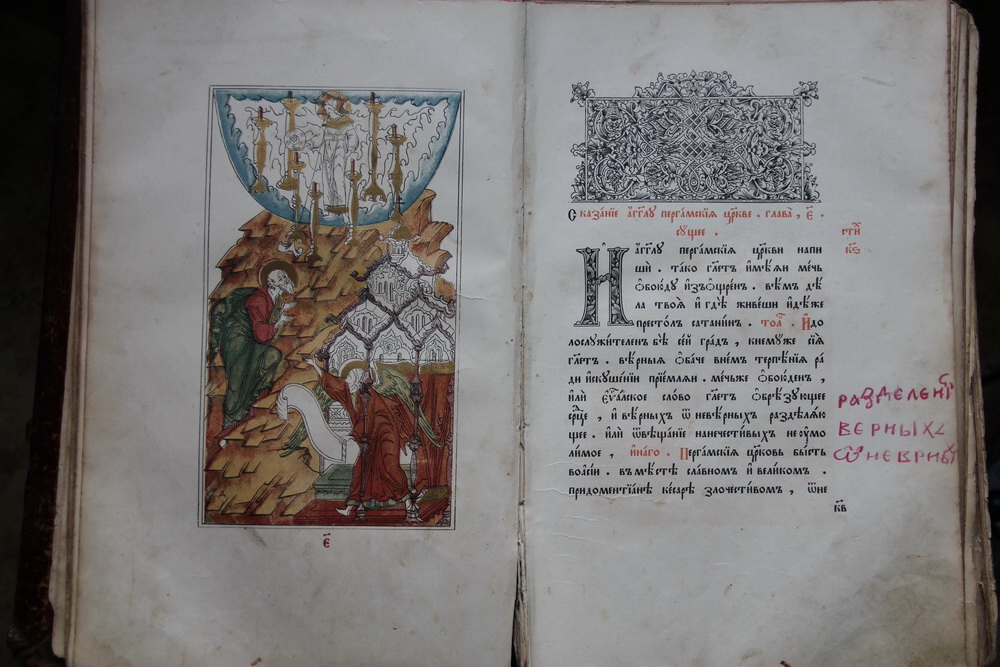 є҃
Сказа́нїе а҆́гг҃лу перга́мскїѧ цр҃кве . глава̀ , є҃ .
су́щее .
сти́х
к҃ѕ
И҆ а҆́гг҃лу перга́мскїѧ цр҃кви напи
шѝ . та́ко гл҃етъ и҆мѣ́ѧи ме́чь
ѻ҆бою́ду и҆зъѡ҆щре́н . вѣ́мъ дѣ
ла̀ твоѧ̀ и҆ гдѣ̀ живе́ши и҆дѣ́же
престо́лъ сатани́нъ . то́л . И҆до
лослужи́телен бѣ̀ се́й гра́дъ , кнему́же сїѧ̀
гл҃етъ . вѣ́рныѧ ѻ҆ба́че вне́мъ терпѣ́нїѧ ра
ди и҆скуше́нїи прїе́млѧи . ме́чьже ѻ҆бою́ден ,
и҆лѝ є҆ѵ҃а́лское сло́во гл҃етъ ѻ҆брѣ́зующее
ср҃це , и҆ вѣ́рныхъ ѿ невѣ́рныхъ раздѣлѧ́ю
щее . и҆лѝ ѿвѣща́нїе нанечести́выхъ неумо
ли́мое , и҆на́го . Перга́мскїѧ цр҃ковь бы́сть
воа́сїи . вмѣ́стѣ сла́вном и҆ вели́ком .
придоментїа́нѣ ке́сарѣ злочести́вом , ѿне
кв
разделени
верныхъ
ѿ неврны